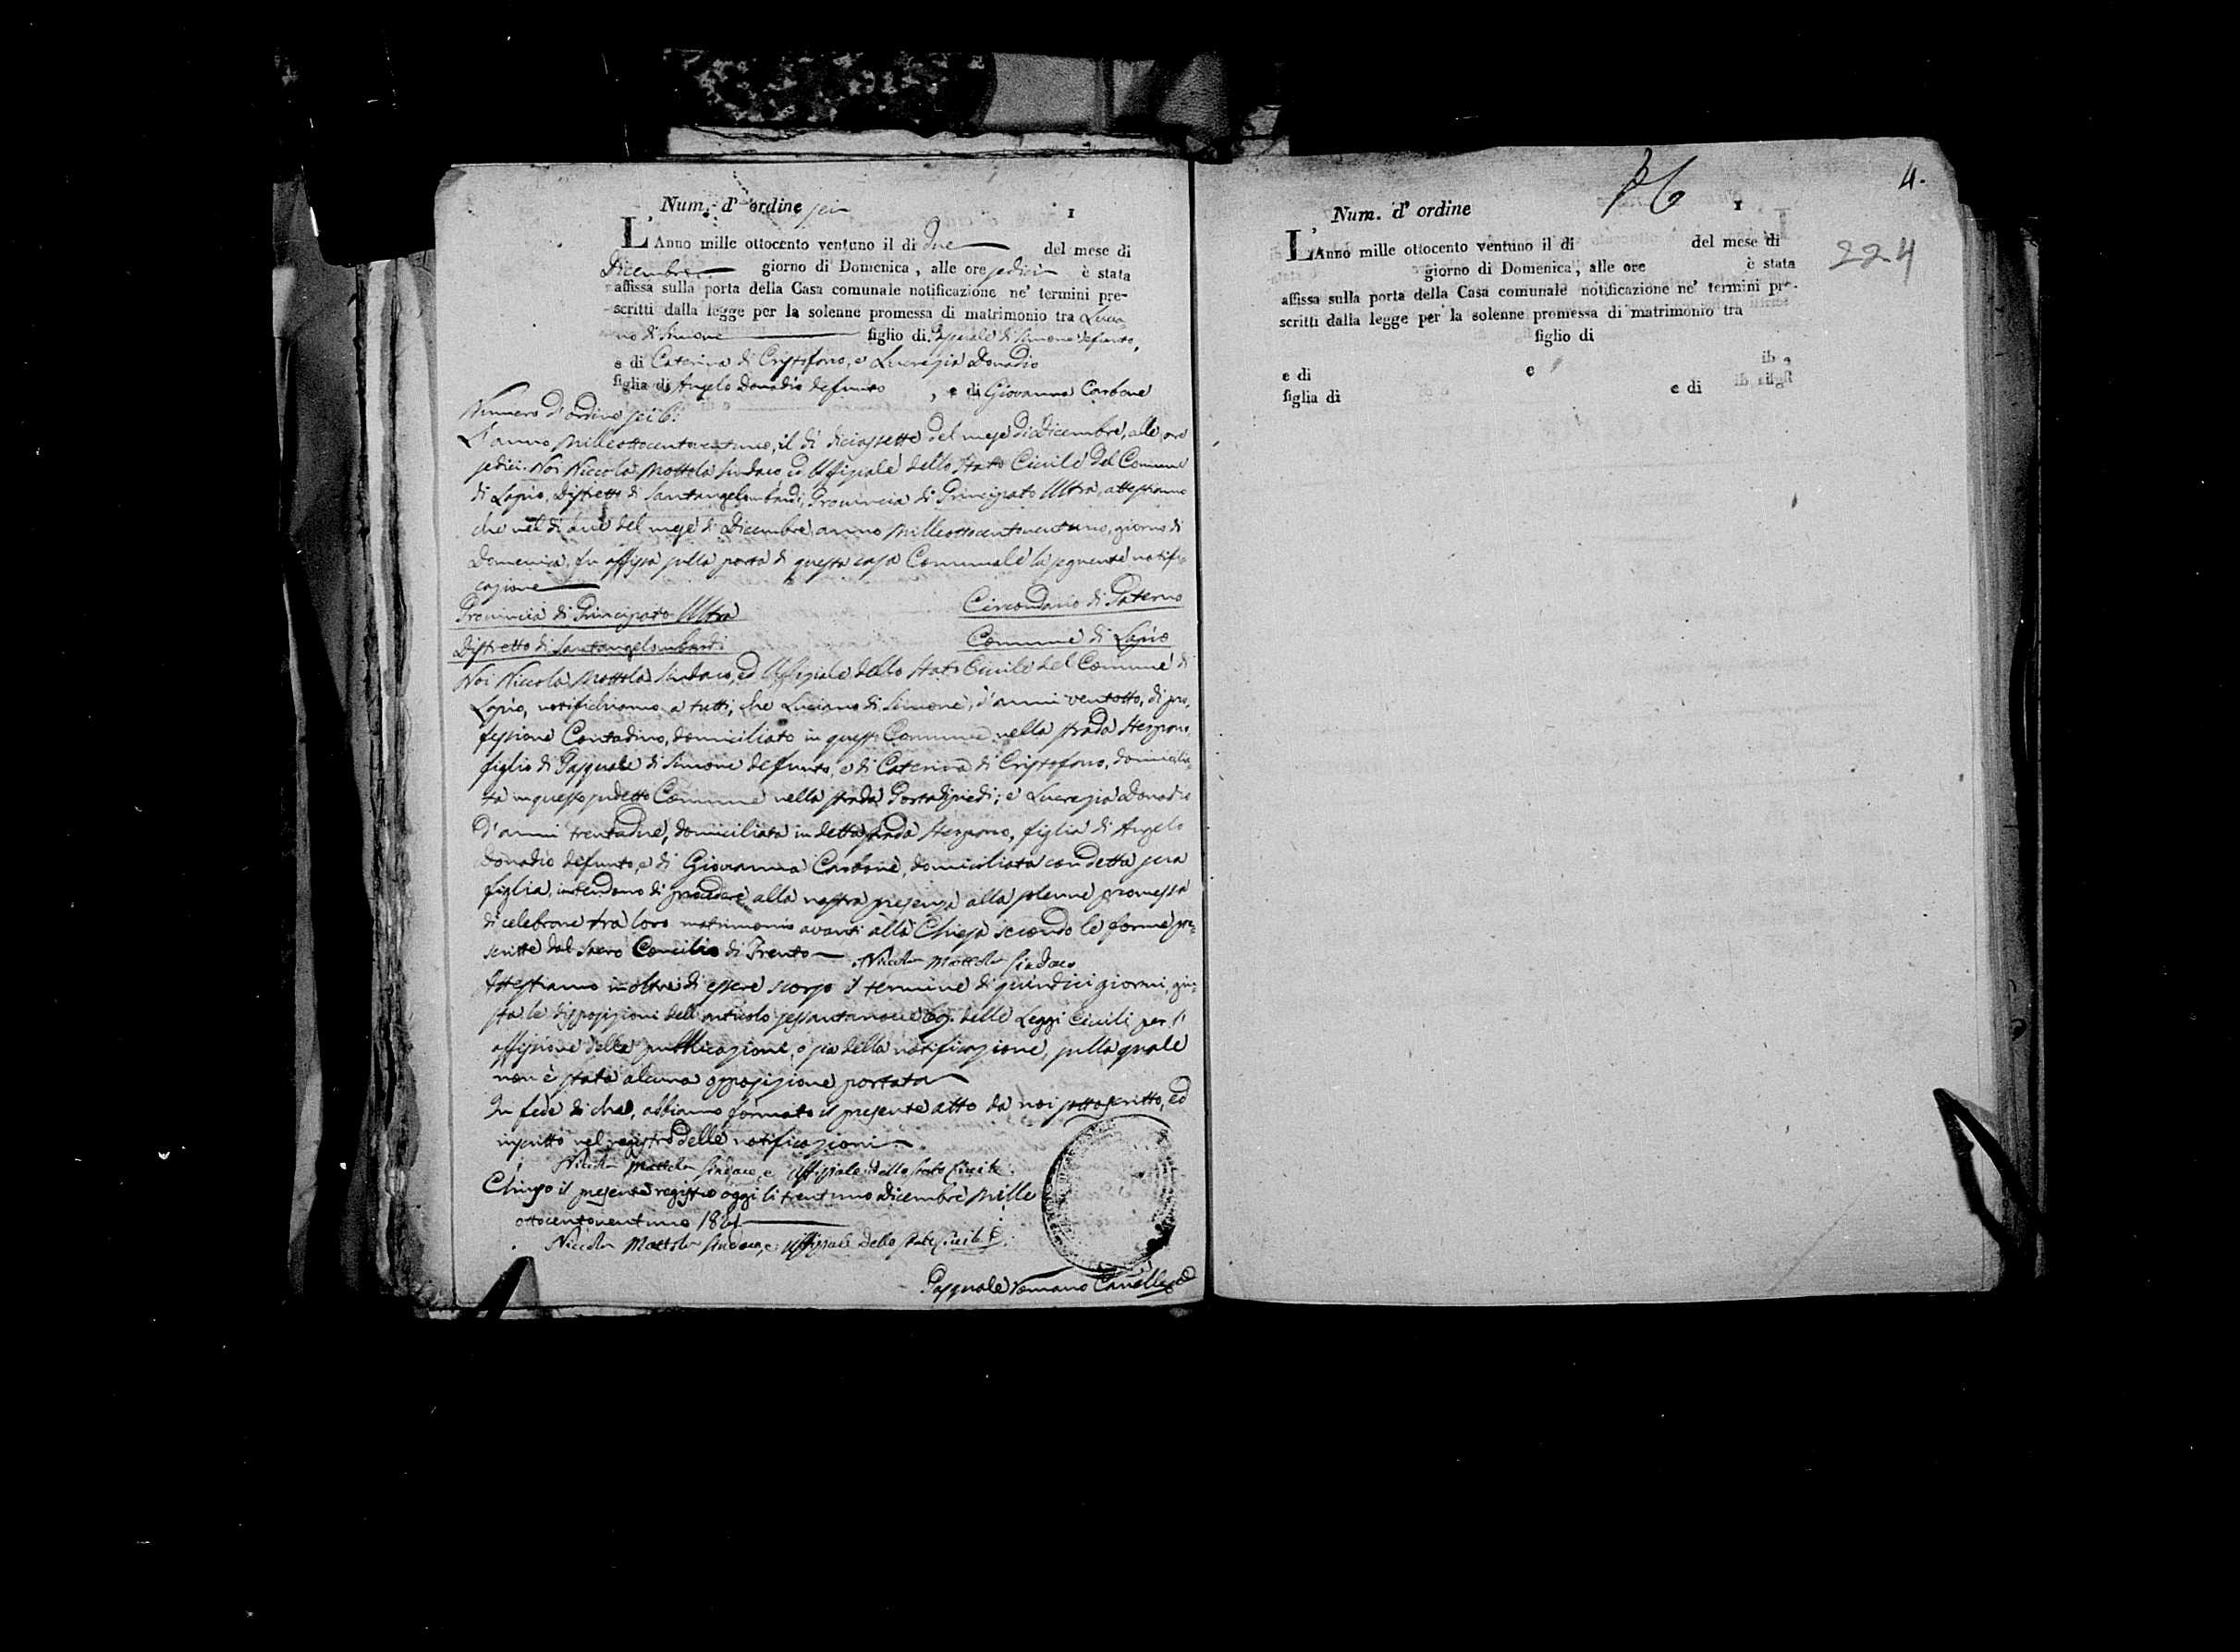 Num. d' ordine sei
1
L'Anno mille ottocento ventuno il di due del mese di
Dicembre giorno di Domenica, alle ore sedici è stata
affissa sulla porta della Casa comunale notificazione ne' termini pre-
scritti dalla legge per la solenne promessa di matrimonio tra Lucia-
no di Simone figlio di Pasquale di Simone defunto,
e di Caterina di Cristofano, e Lucrezia Donadio
figlia di Angelo Donadio defunto, e di Giovanna Carbone
Numero d'ordine sei 6:
L'anno milleottocentoventuno, il dì diciassette del mese di Dicembre, alle ore
sedici. Noi Niccola Mottola Sindaco, ed Uffiziale dello Stato Civile del Comune
di Lapio, Distretto di Santangelombardi, Provincia di Principato Ultra, attestiamo
che nel dì due del mese di Dicembre anno milleottocentoventuno, giorno di
Domenica, fu affissa sulla porta di questa casa Comunale la seguente notifi-
cazione
Provincia di Principato Ultra
Circondario di Paterno
Distretto di Santangelombardi
Comune di Lapio
Noi Niccola Mottola Sindaco, ed Uffiziale dello Stato Civile del Comune di
Lapio, notifichiamo a tutti, che Luciano di Simone, d'anni ventotto, di pro-
fessione Contadino, domiciliato in questo Comune nella strada
figlio di Pasquale di Simone defunto, e di Caterina di Cristofano, domicilia-
ta in questo sudetto Comune nella strada Portadipiedi; e Lucrezia Donadio
d'anni trentadue, domiciliata in detta strada figlia di Angelo
Donadio defunto, e di Giovanna Carbone, domiciliata con detta sua
figlia, intendono di procedere alla nostra presenza alla solenne promessa
di celebrare tra loro matrimonio avanti alla Chiesa secondo le forme pre-
scritte dal Sacro Concilio di Trento Niccola Mottola Sindaco
Attestiamo inoltre di essere scorso il termine di quindici giorni, giu-
sta le disposizioni dell'articolo sessantanove 69. delle Leggi Civili per l'
affissione della pubblicazione, o sia della notificazione, sulla quale
non è stata alcuna opposizione portata
In fede di che, abbiamo formato il presente atto da noi sottoscritto, ed
inscritto nel registro delle notificazioni
Niccola Mottola Sindaco, e Uffiziale dello Stato Civile
Chiuso il presente registro oggi li trentuno dicembre mille
ottocentoventuno 1821
Niccola Mottola Sindaco, e Uffiziale dello Stato Civile
Pasquale Romano
4.
Num. d' ordine
1
L'Anno mille ottocento ventuno il di del mese di
224
giorno di Domenica, alle ore è stata
affissa sulla porta della Casa comunale notificazione ne' termini pre-
scritti dalla legge per la solenne promessa di matrimonio tra
figlio di
e di e
figlia di e di